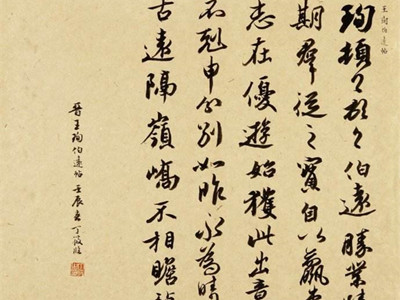 王珣伯遠帖
珣頓首頓首伯遠勝業情
期羣從之寶自以羸患
志在優遊始獲此出意
不剋申分別如昨永為疇
古遠隔嶺嶠不相瞻臨
晉王珣伯遠帖壬辰